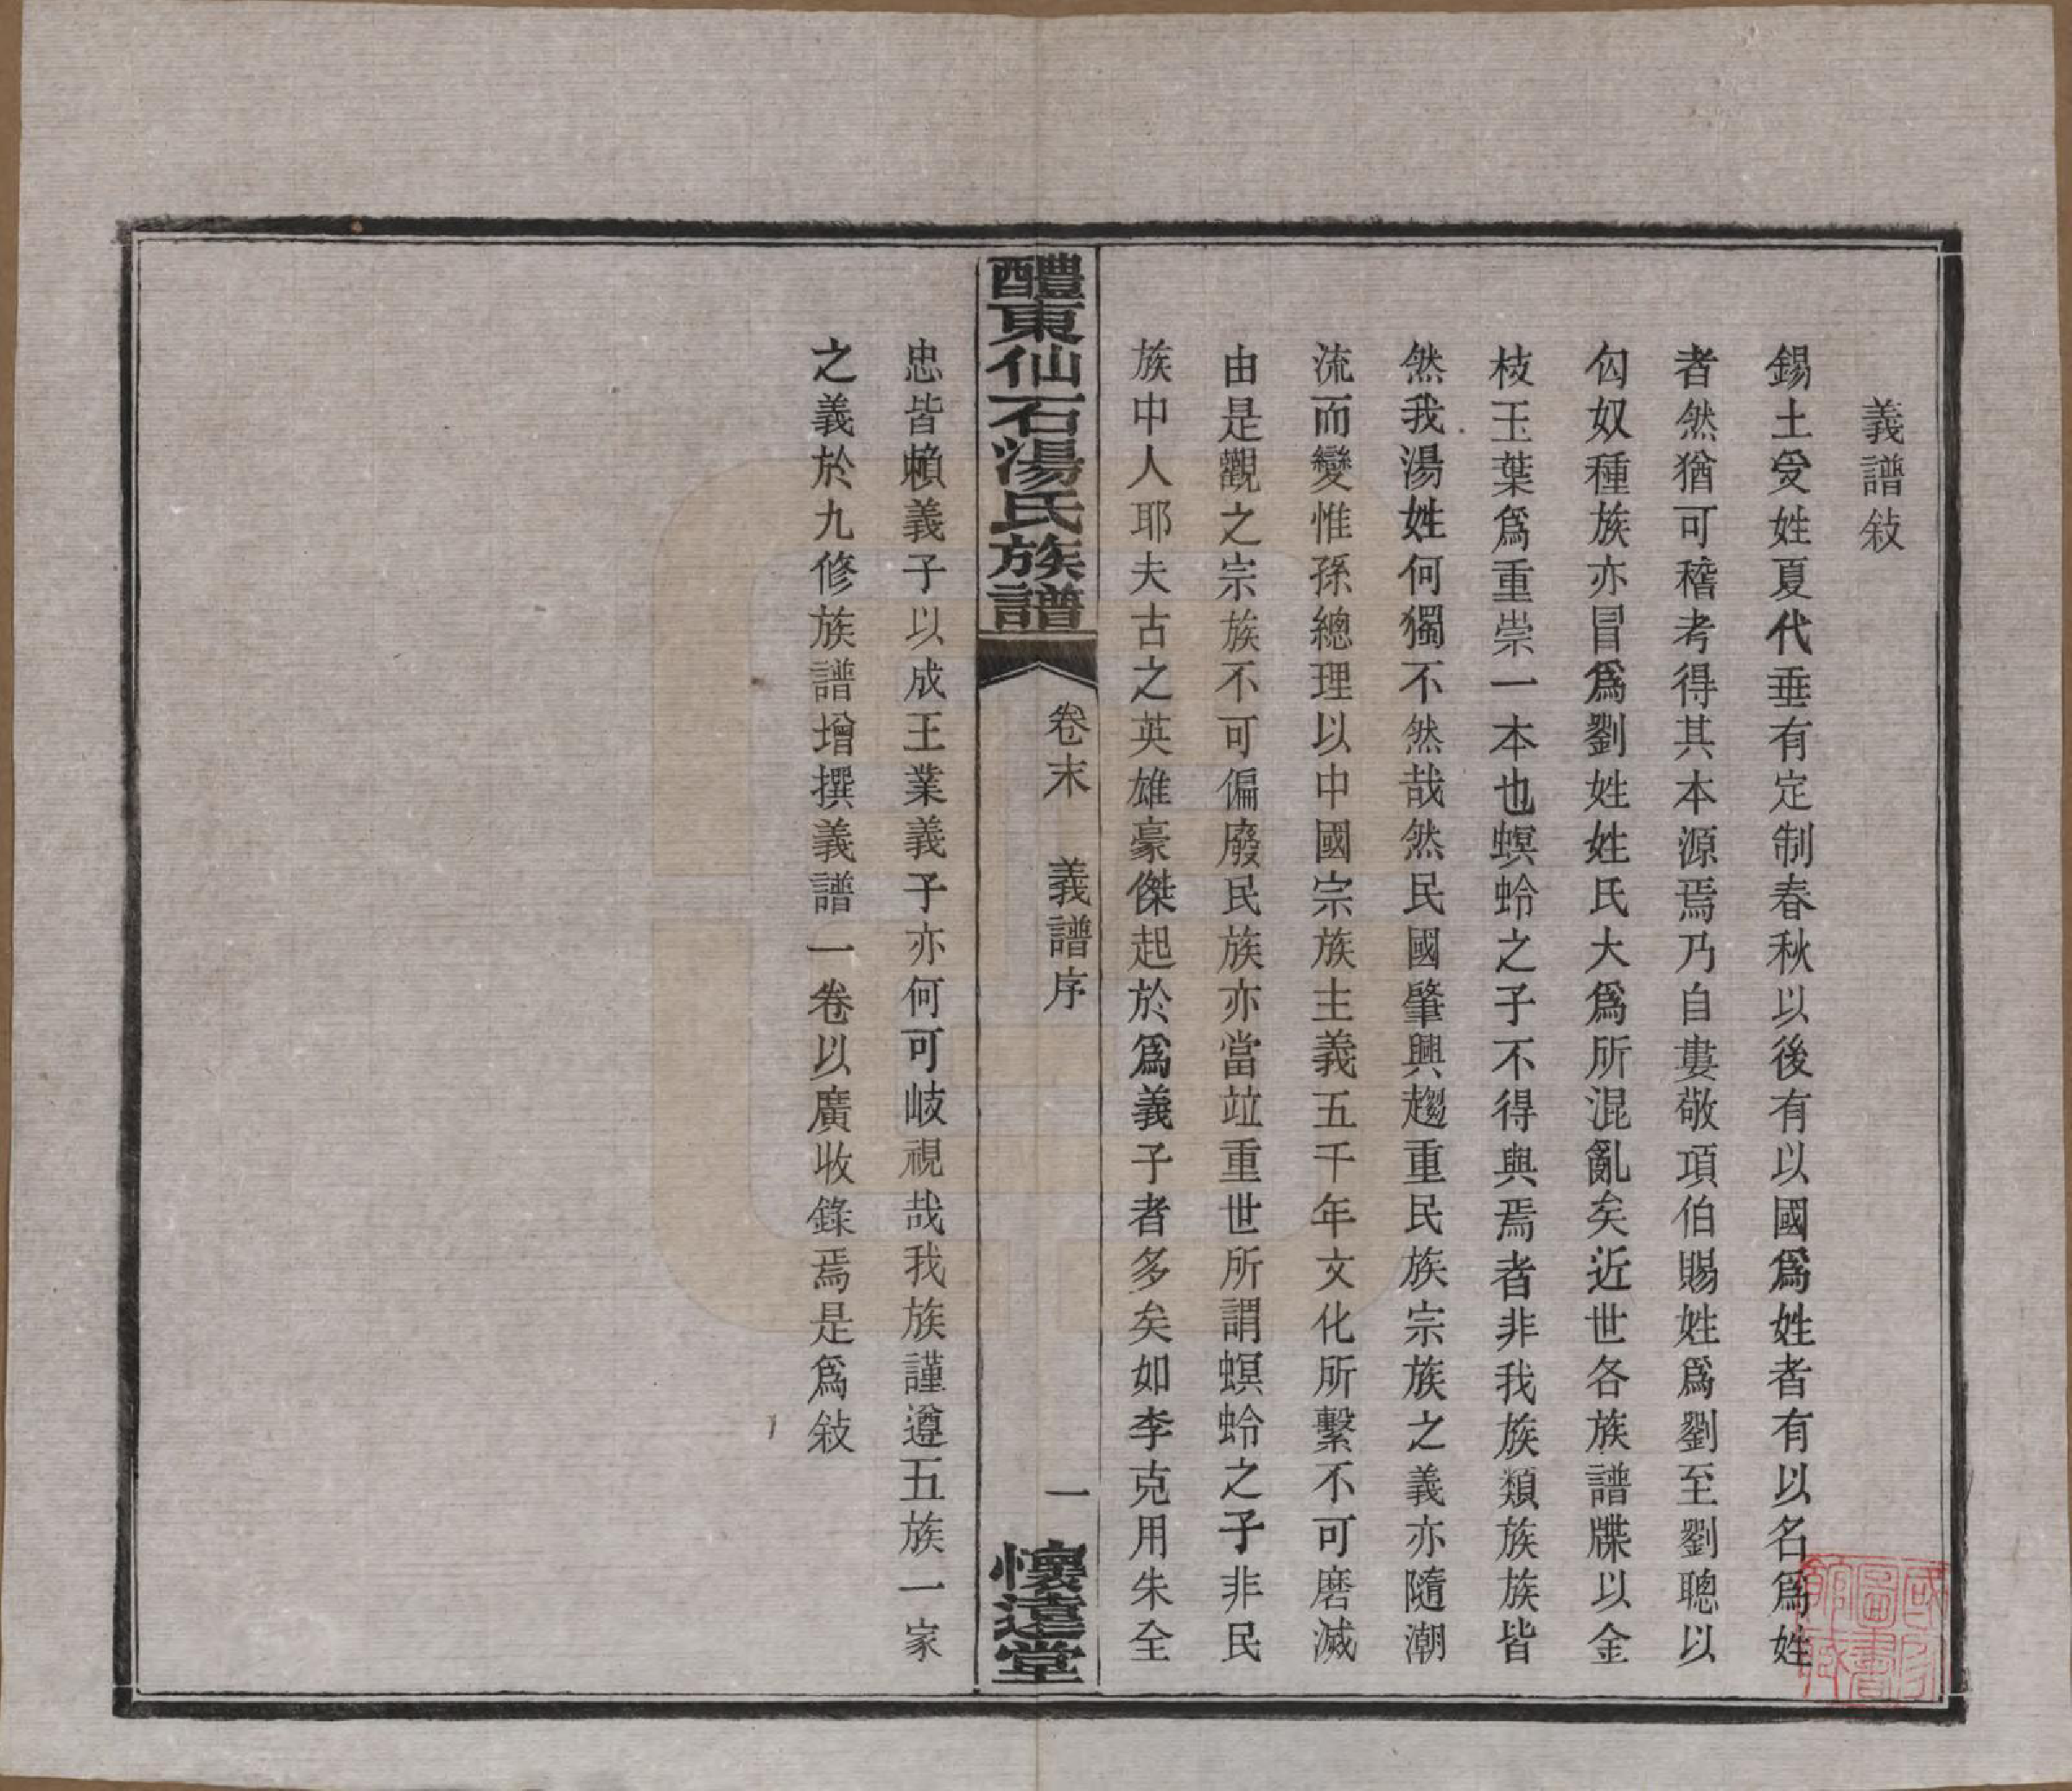 義譜敍
錫土受姓夏代垂有定制春秋以後有以國爲姓者有以名爲姓
者然猶可稽考得其本源焉乃自婁敬項伯賜姓爲劉至劉聰以
匈奴種族亦冒爲劉姓姓氏大爲所混亂矣近世各族譜牒以金
枝玉葉爲重崇一本也螟蛉之子不得與焉者非我族類族族皆
然我湯姓何獨不然哉然民國肇興趨重民族宗族之義亦隨潮
流而變惟孫總理以中國宗族主義五千年文化所繫不可磨滅
由是觀之宗族不可偏廢民族亦當竝重世所謂螟蛉之子非民
族中人耶夫古之英雄豪傑起於爲義子者多矣如李克用朱全
醴東仙石湯氏族譜 卷末 義譜序 一 懷遠堂
忠皆賴義子以成王業義子亦何可岐視哉我族謹遵五族一家
之義於九修族譜增撰義譜一卷以廣收錄焉是爲敍